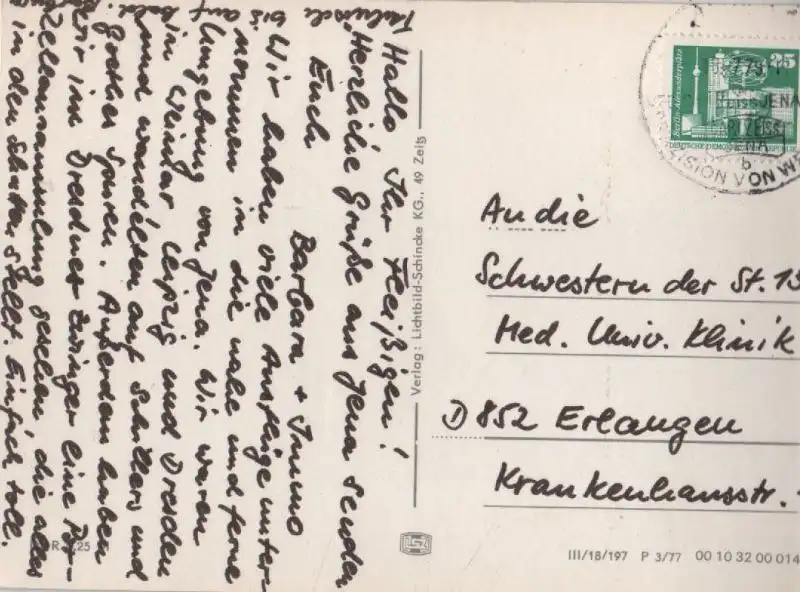 Hallo, Ihr Fleißigen!
Herzliche Grüße aus Jena senden
Euch
Barbara + Immo
Wir haben viele Ausflüge unter-
nommen in die nahe und ferne
Umgebung von Jena. Wir waren
in Weimar, Leipzig und Dresden
und wandelten auf Schillers und
Goethes Spuren. Außerdem haben
wir im Dresdner Zwinger eine Por-
zellansammlung gesehen, die alles
in den Schatten stellt. Einfach toll.
bis
auf
bald
Verlag: Lichtbild-Schincke KG., 49 Zeitz
25
Berlin-Alexanderplatz
JENA
CARL ZEISS
JENA
b
VON
An die
Schwestern der St. 13
Med. Univ. Klinik
D 852 Erlangen
Krankenhausstr.
III/18/197 P 3/77 00 10 32 00 014